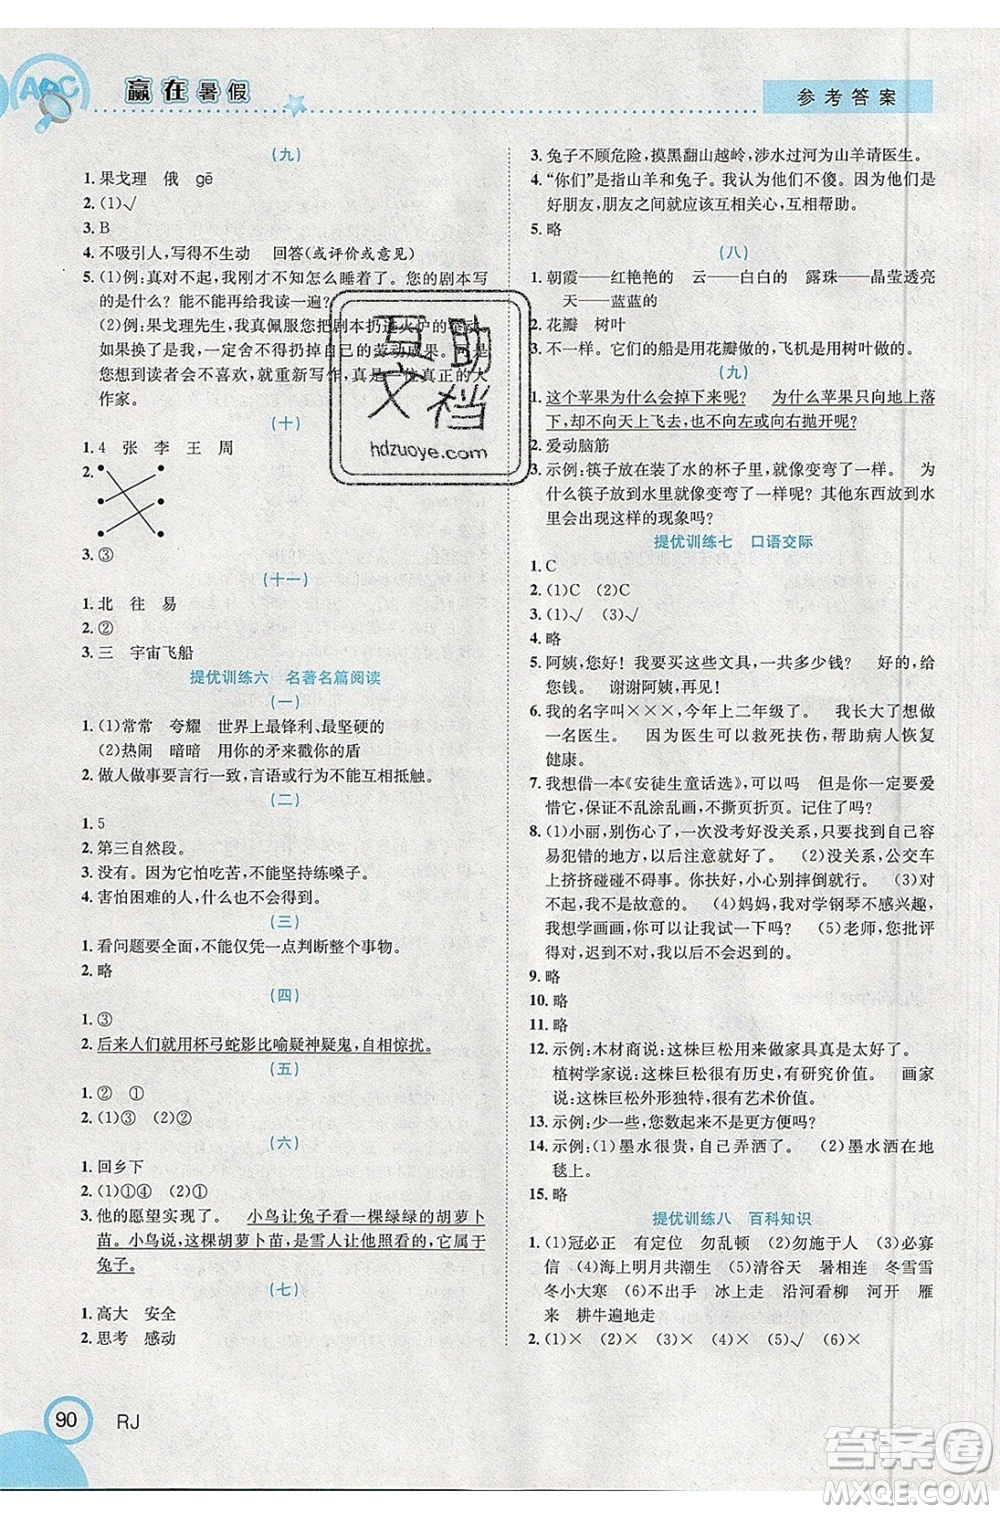 ABC
赢在暑假
参考答案
(九)
1. 果戈理 俄 gē
2. (1)√
3. B
4. 不吸引人,写得不生动 回答(或评价或意见)
5. (1)例:真对不起,我刚才不知怎么睡着了。您的剧本写
的是什么?能不能再给我读一遍?
(2)例:果戈理先生,我真佩服您把剧本扔进火炉的举动。
如果换了我,一定舍不得扔掉自己的劳动成果。可是
您想到读者不喜欢,就重新写作,真是一位真正的大
作家。
(十)
1. 4 张 李 王 周
2.
3. ③
(十一)
1. 北 往 易
2. ②
3. 三 宇宙飞船
提优训练六 名著名篇阅读
(一)
1. (1)常常 夸耀 世界上最锋利、最坚硬的
(2)热闹 暗暗 用你的矛来戳你的盾
2. 做人做事要言行一致,言语或行为不能互相抵触。
(二)
1. 5
2. 第三自然段。
3. 没有。因为它怕吃苦,不能坚持练嗓子。
4. 害怕困难的人,什么也学不会的。
(三)
1. 看问题要全面,不能仅凭一点判断整个事物。
2. 略
(四)
1. ③
2. 后来人们就用杯弓蛇影比喻疑神疑鬼,自相惊扰。
(五)
1. ②①
2. (1)②① (2)②
(六)
1. 回乡下
2. (1)①④ (2)②
3. 他的愿望实现了。 小鸟让兔子看一棵绿绿的胡萝卜
苗。小鸟说,这棵胡萝卜苗,是雪人让他照看的,它属于
兔子。
(七)
1. 高大 安全
2. 思考 感动
3. 兔子不顾危险,摸黑翻山越岭,涉水过河为山羊请医生。
4. “你们”是指山羊和兔子。我认为他们不傻。因为他们是
好朋友,朋友之间就应该互相关心,互相帮助。
5. 略
(八)
1. 朝霞——红艳艳的 云——白白的 露珠——晶莹透亮
天——蓝蓝的
2. 花瓣 树叶
3. 不一样。它们的船是用花瓣做的,飞机是用树叶做的。
(九)
1. 这个苹果为什么会掉下来呢? 为什么苹果只向地上落
下,却不向天上飞去,也不向左或向右抛开呢?
2. 爱动脑筋
3. 示例:筷子放在装了水的杯子里,就像变弯了一样。 为
什么筷子放到水里就像变弯了一样?其他东西放到水
里会出现这样的现象吗?
提优训练七 口语交际
1. C
2. (1)C (2)C
3. (1)√ (3)√
4. 略
5. 阿姨,您好!我要买这些文具,一共多少钱? 好的,给
您钱。 谢谢阿姨,再见!
6. 我的名字叫×××,今年上二年级了。 我长大了想做
一名医生。 因为医生可以救死扶伤,帮助病人恢复
健康。
7. 我想借一本《安徒生童话选》,可以吗? 但是一定要爱
惜它,保证不乱涂乱画,不撕页折页。记住了吗?
8. (1)小丽,别伤心了,一次没考好没关系,只要找到自己容
易犯错的地方,以后注意就好了。 (2)没关系,公交车
上挤挤碰碰不碍事。你扶好,小心别摔倒就行了。 (3)对
不起,我不是故意的。 (4)妈妈,我对学钢琴不感兴趣,
我想学画画,可以让我试一下吗? (5)老师,您批评
得对,迟到不对,我以后不会迟到的。
9. 略
10. 略
11. 略
12. 示例:木材商说:这株巨松用来做家具真不错。
植树学家说:这株巨松很有历史,有研究价值。 画家
说:这株巨松外形独特,很有艺术价值。
13. 示例:少一些,您数起来不更方便吗?
14. 示例:(1)墨水很贵,自己弄洒了。 (2)墨水洒在地
毯上。
15. 略
提优训练八 百科知识
1. (1)冠必正 有定位 勿乱顿 (2)勿施于人 (3)必寡
信 (4)海上明月共潮生 (5)清谷天 暑相连 冬雪雪
冬小大寒 (6)不出手 冰上走 沿河看柳 河开 雁
来 耕牛遍地走
2. (1)× (2)× (3)× (4)× (5)√ (6)×
互助
文档
hdzuoye.com
90 RJ
答案圈
MXQE.COM